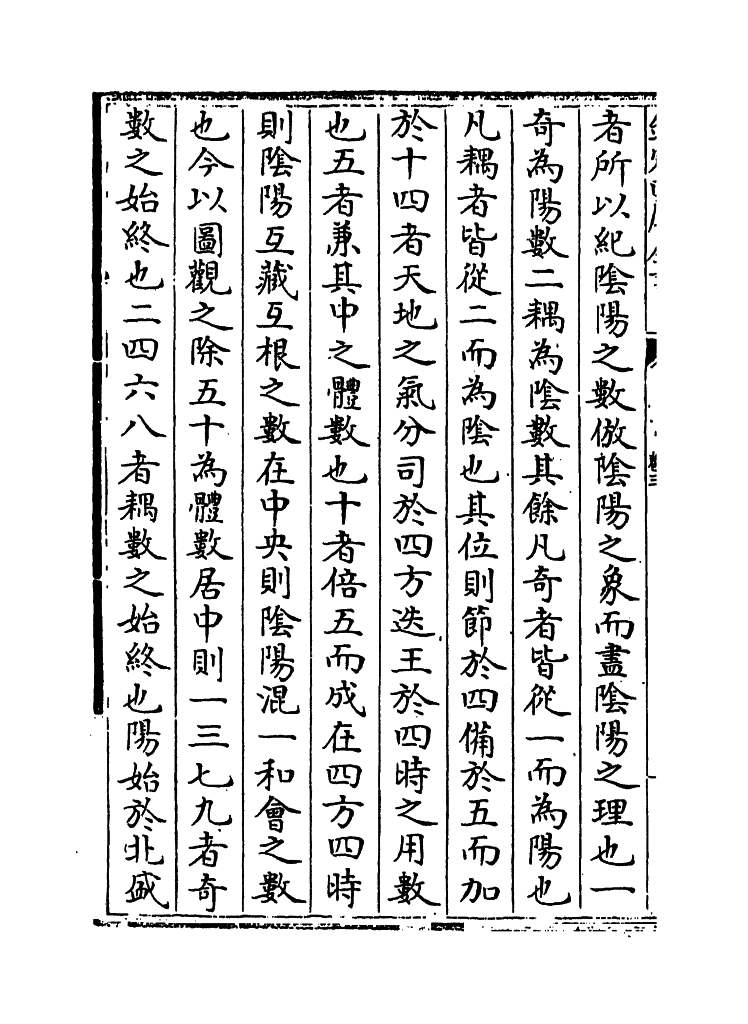 者所以紀陰陽之數倣陰陽之象而盡陰陽之理也一
奇為陽數二耦為陰數其餘凡奇者皆從一而為陽也
凡耦者皆從二而為陰也其位則節於四備於五而加
於十四者天地之氣分司於四方迭王於四時之用數
也五者兼其中之體數也十者倍五而成在四方四時
則陰陽互藏互根之數在中央則陰陽混一和會之數
也今以圖觀之除五十為體數居中則一三七九者奇
數之始終也二四六八者耦數之始終也陽始於北盛